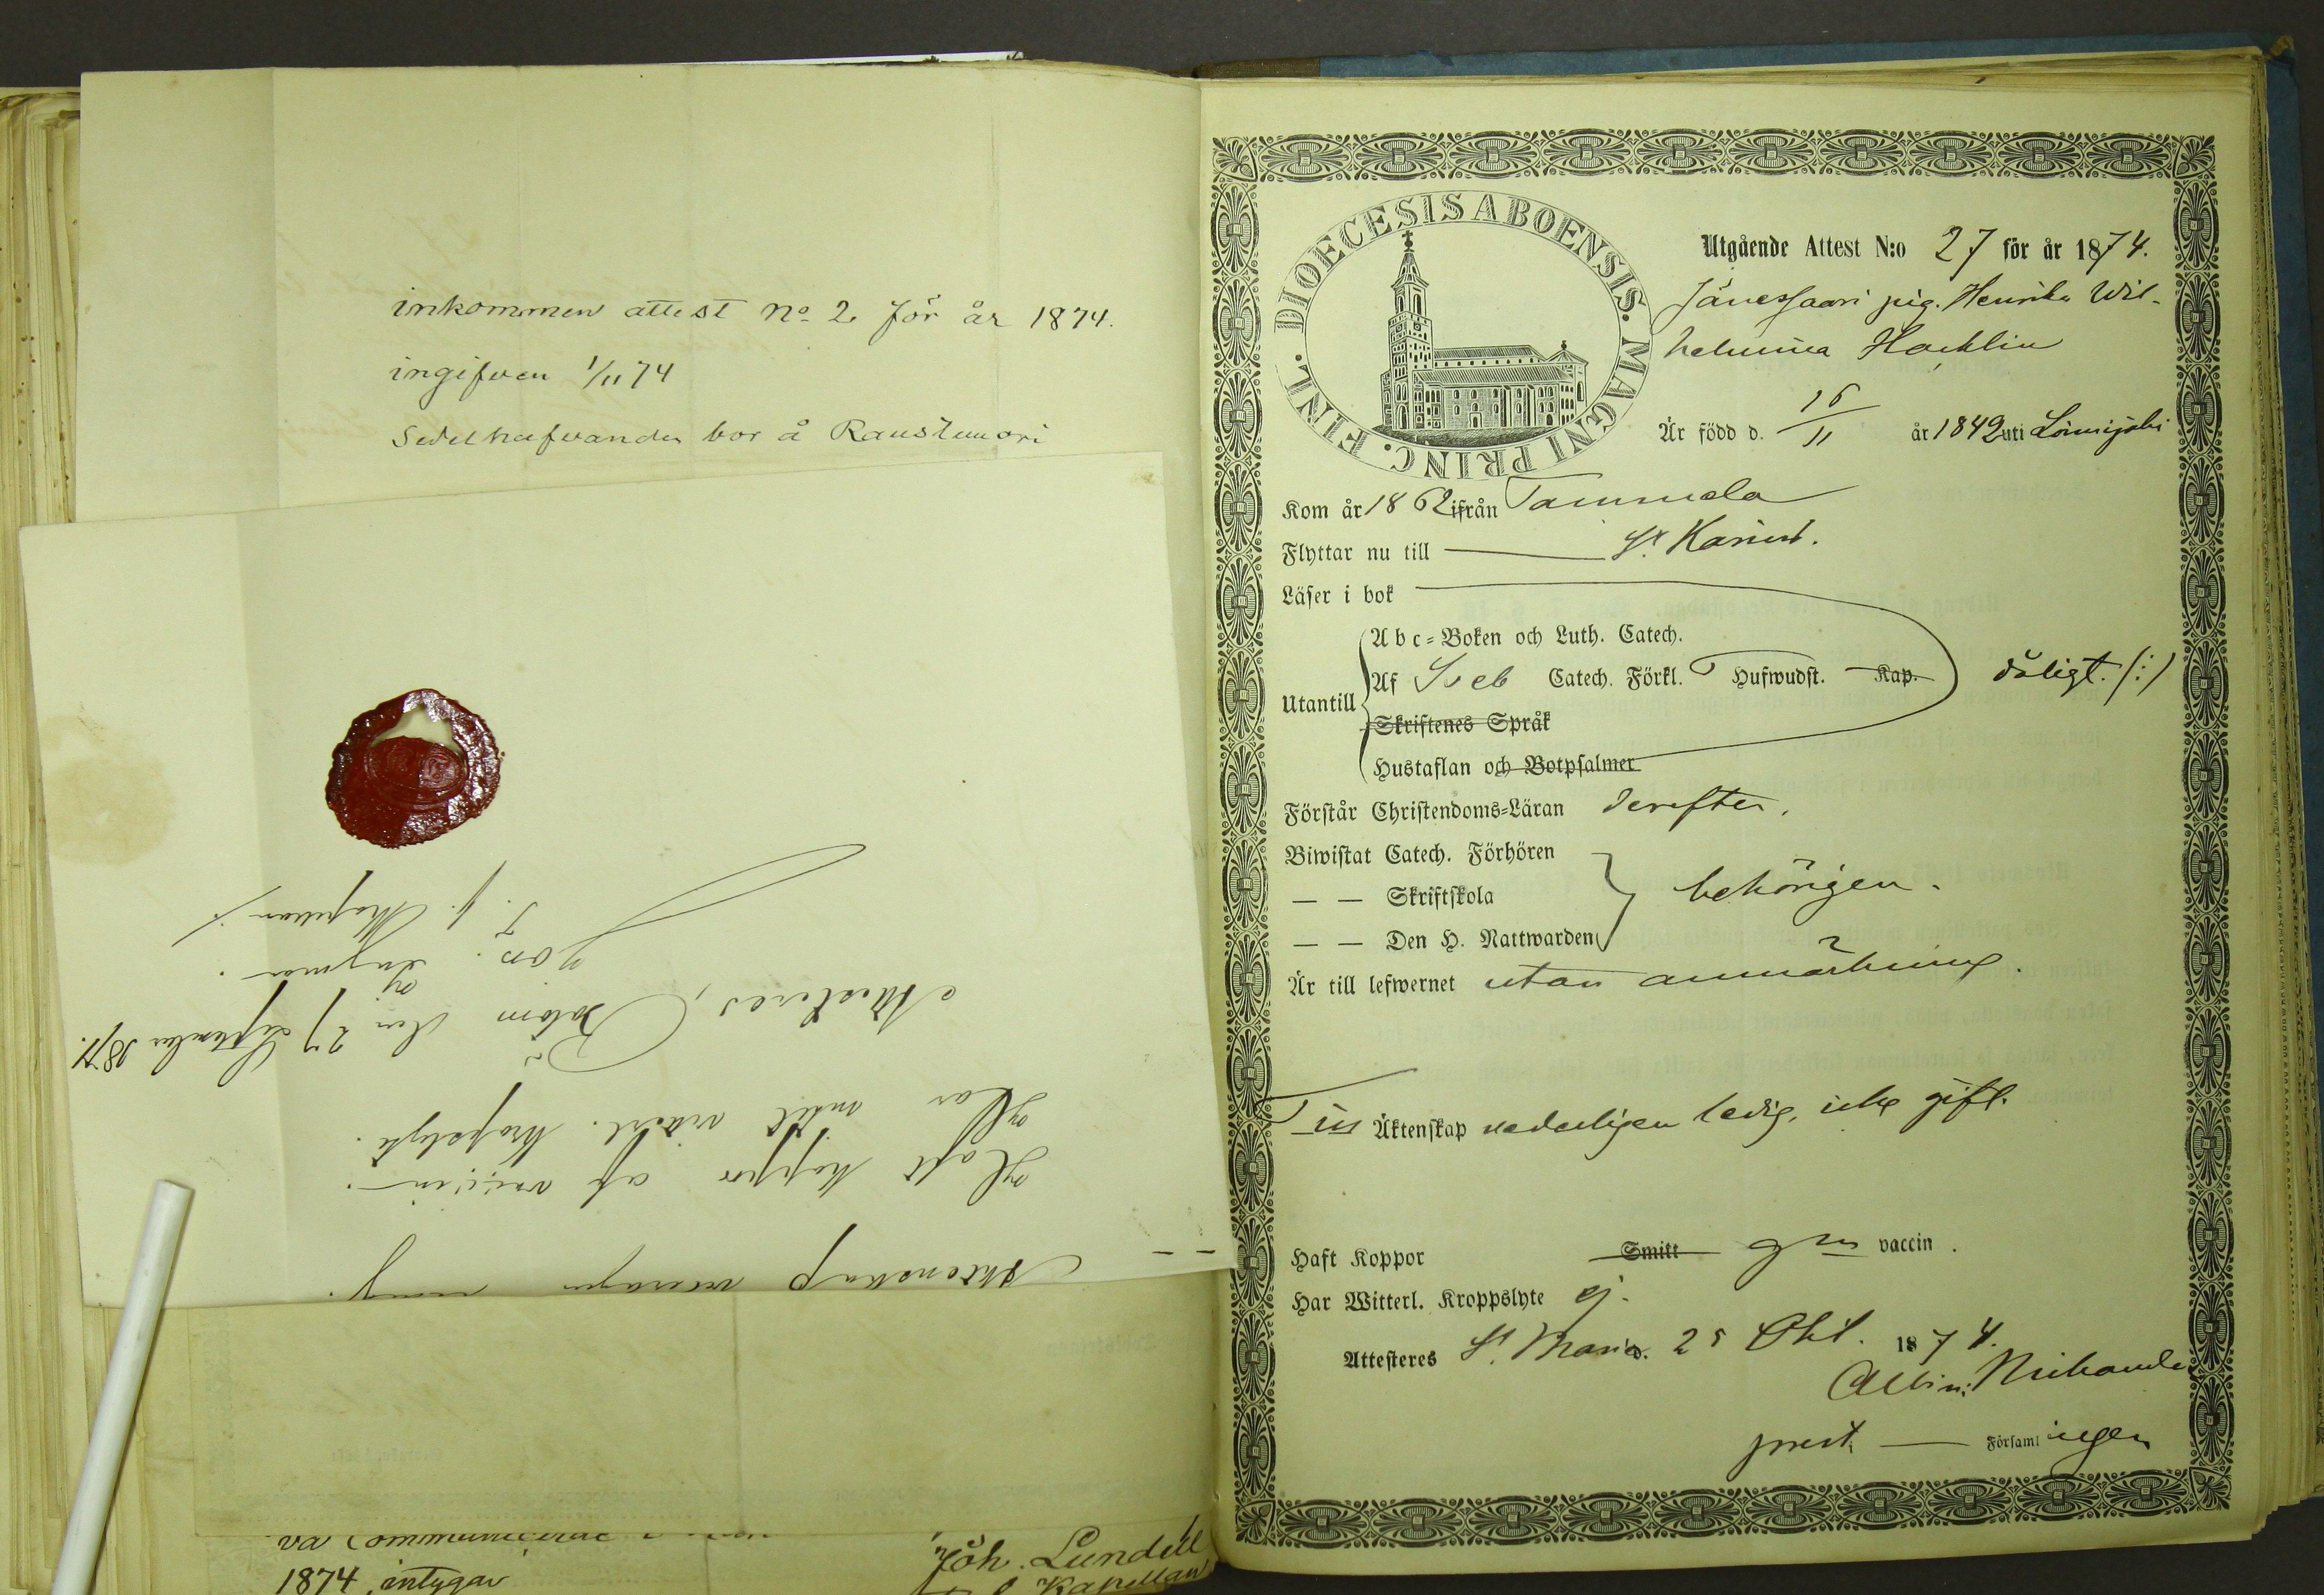 inkommen attest No 2 för år 1874.
ingifven 1/11 74
Sedelhafvanden bor å Raustumari
Äktenskap
Haft koppor af vaccin.
Har intet vitterl. kropslyte.
Attesteras, den 27 September 1874.
Kapellan
va Communicerat
1874, intygar
Joh. Lundell
Kapellan
DIOECESIS ABOENSIS. MAGNI PRINC. FINL.
Utgående Attest N:o 27 för år 1874.
Jänessaari pig. Henrika Wil-
helmina Hacklin
Är född d. 16/11 år 1842 uti Lönnijoki
Kom år 1862 ifrån Tammela
Flyttar nu till St Karins.
Läser i bok
Utantill
Abc-Boken och Luth. Catech.
Af Sveb Catech. Förkl. Hufwudst. Kap. dåligt. (:)
Skriftenes Språk
Hustaflan och Botpsalmer
Förstår Christendoms-Läran derefter.
Biwistat Catech. Förhören
— — Skriftskola behörigen.
— — Den H. Nattwarden
Är till lefwernet utan anmärkning.
Till Äktenskap vederligen ledig, icke gift.
Haft Koppor Smitt gm vaccin.
Har Witterl. Kroppslyte ej.
Attesteres St. Maria. 25 Okt. 1874.
Albin
prest. — Församlingen